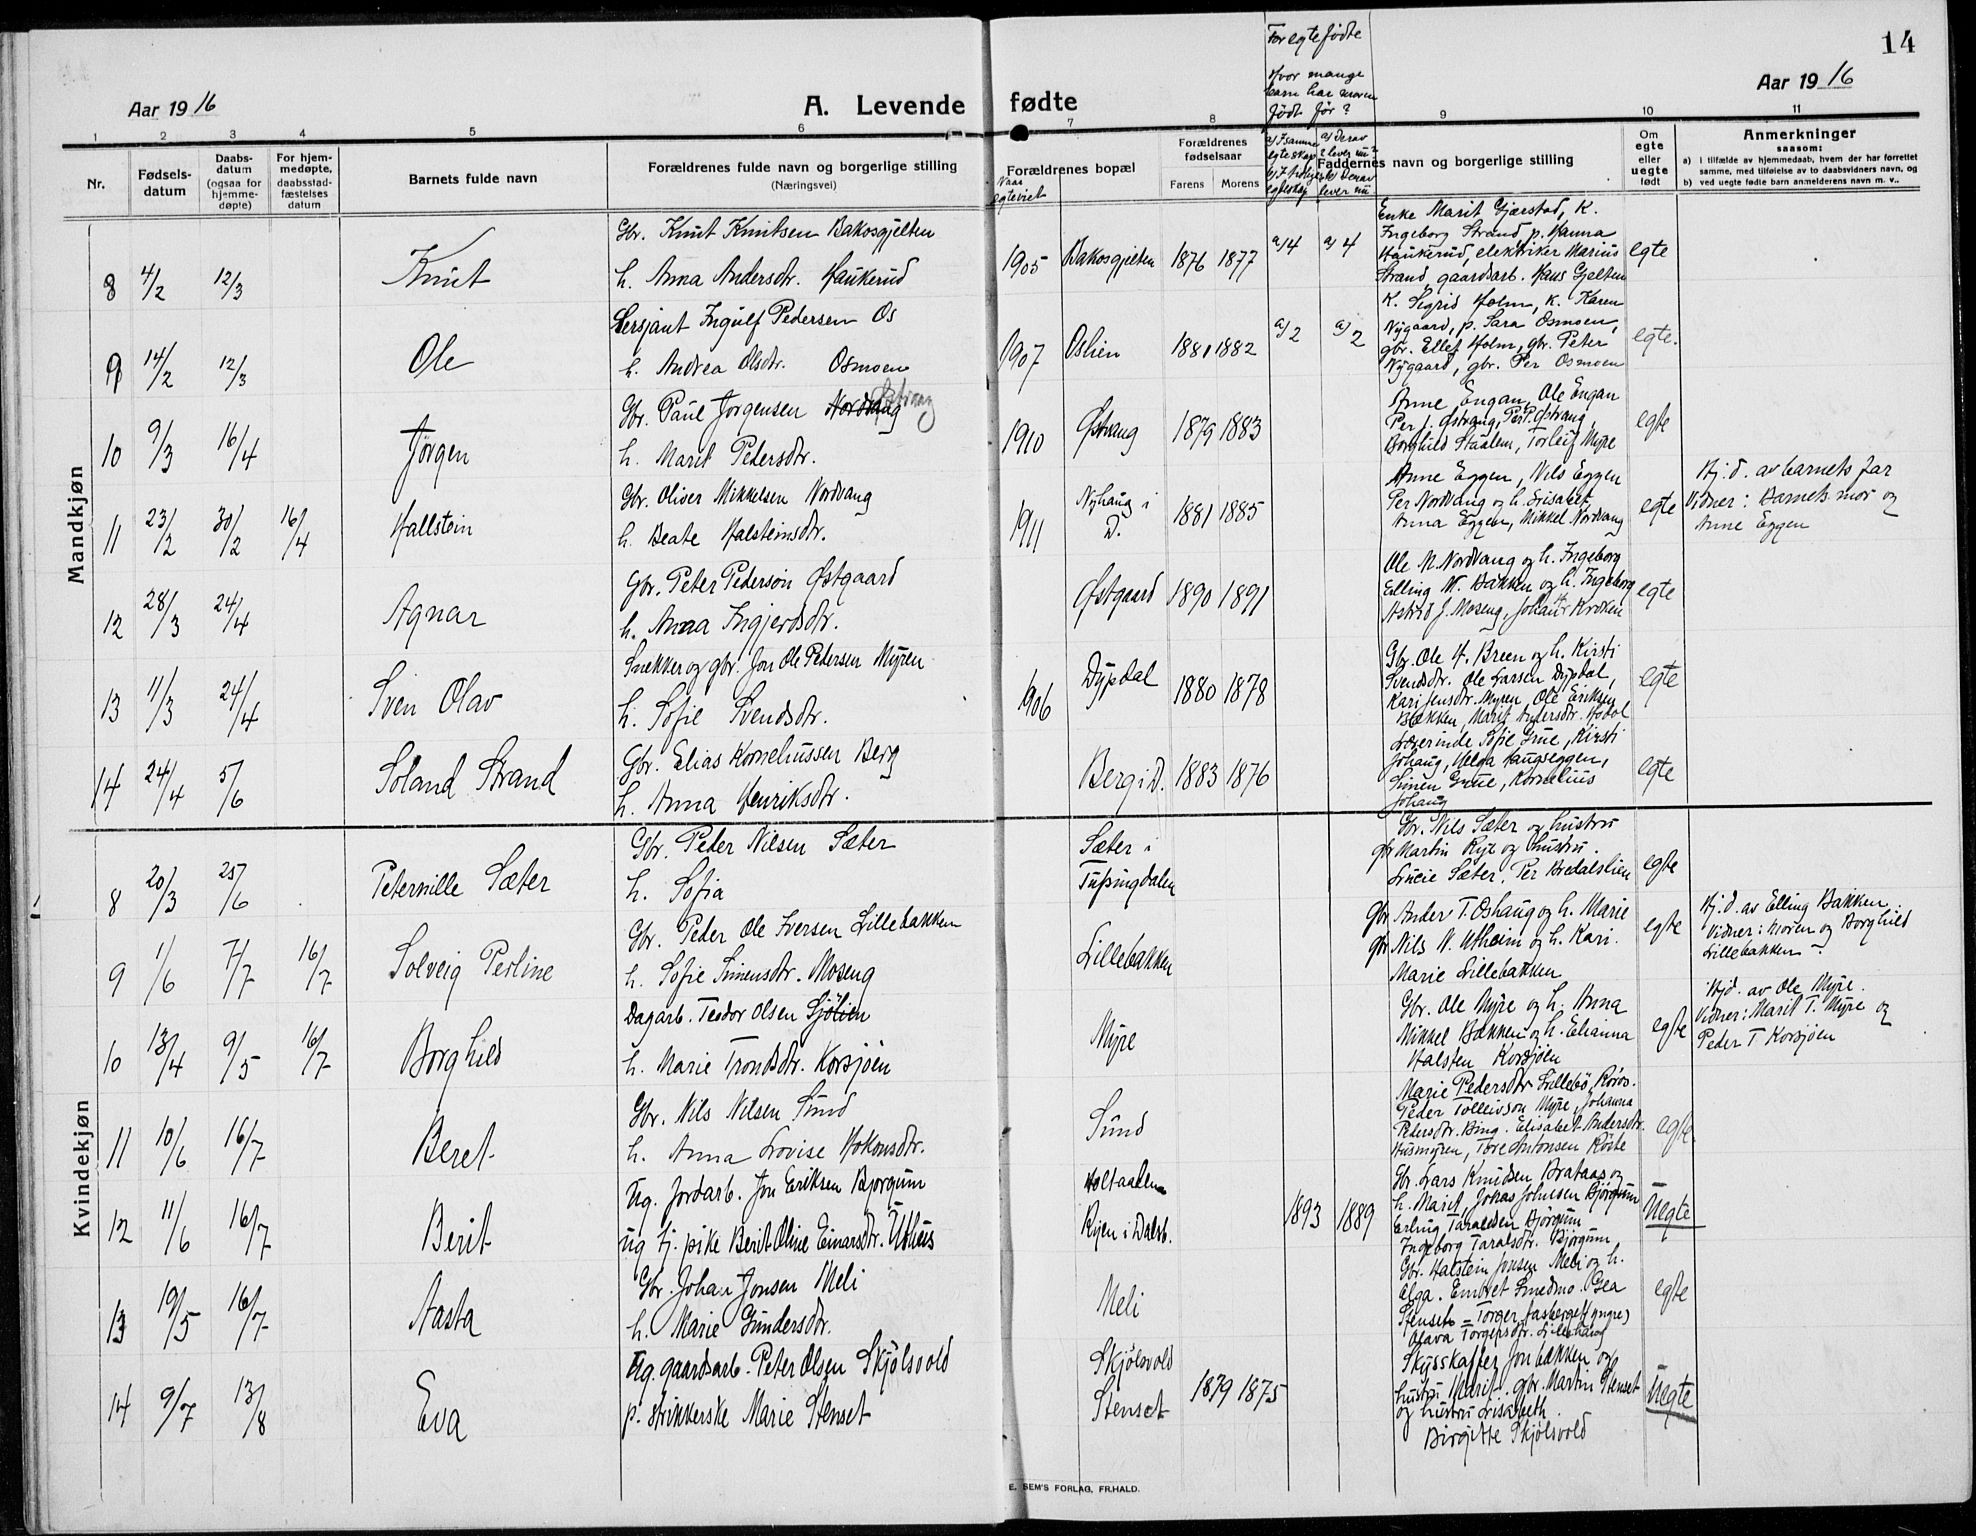 14
Aar 1916
A. Levende fødte
Aar 1916
For egtefødte
Hvor mange
barn har moren
født før?
1 2 3 4 5 6 7 8 9 10 11
Nr.
Fødsels-
datum
Daabs-
datum
(ogsaa for
hjemme-
døpte)
For hjem-
medøpte,
daabsstad-
fæstelses
datum
Barnets fulde navn
Forældrenes fulde navn og borgerlige stilling
(Næringsvei)
Forældrenes bopæl
Naar
egteviet
Forældrenes
fødselsaar
Farens Morens
Faddernes navn og borgerlige stilling
Om
egte
eller
uegte
født
Anmerkninger
saasom:
a) i tilfælde av hjemmedaab, hvem der har forrettet
samme, med tilføielse av to daabsvidners navn, og
b) ved uegte fødte barn anmelderens navn m. v..
Mandkjøn
8 4/2 12/3 Knut
Gbr. Knut Knutsen Bakosgjelten
h. Anna Andersdtr. Haukerud
1905 Bakosgjelten 1876 1877 a) 4 a) 4
Enke Marit Gjærstad, K.
Ingeborg Strand p. Hanna
Haukerud, elektriker Marius
Strand, gaardsarb. Hans Gjelten
egte
9 14/2 12/3 Ole
Sersjant Ingulf Pedersen Os
h. Andrea Olsdtr. Osmoen
1907 Oslien 1881 1882 a) 2 a) 2
K. Sigrid Holm, K. Karen
Nygaard, p. Sara Osmoen,
gbr. Ellef Holm, gbr. Peter
Nygaard, gbr. Per Osmoen
egte.
10 9/3 16/4 Jørgen
Gbr. Paul Jørgensen Nordvang Østvang
h. Marit Pedersdtr.
1910 Østvang 1879 1883
Anne Engan, Ole Engan
Per J. Østvang, Per P. Østvang,
Borghild Staalen, Torleif Myre
egte
11 23/2 30/2 16/4 Hallstein
Gbr. Oliver Mikkelsen Nordvang
h. Beate Halsteinsdtr.
1911 Nyhaug i
D. 1881 1885
Anne Eggen, Nils Eggen
Per Nordvang og h. Lisabet,
Anna Eggen, Mikkel Nordvang
egte
Hj. d. av barnets far
Vidner: Barnets mor og
Anne Eggen
12 28/3 24/4 Agnar
Gbr. Peter Pederson Østgaard
h. Anna Ingjerdsdtr.
Østgaard 1890 1891
Ole N. Nordvang og h. Ingeborg
Elling N. Bakken og h. Ingeborg
Astrid J. Moseng, Johan H. Kroken
egte
13 11/3 24/4 Sven Olav
Snekker og gbr. Jon Ole Pedersen Myren
h. Sofie Svendsdtr.
1906 Dypdal 1880 1878
Gbr. Ole H. Breen og h. Kirsti
Svendsdtr. Ole Larsen Dypdal,
Kari Jensdtr. Myren, Ole Eriksen
Bækken, Marit Andersdtr. Hodal
egte
14 24/4 5/6 Soland Strand
Gbr. Elias Korneliussen Berg
h. Anna Henriksdtr.
Berg i D. 1883 1876
Lærerinde Sofie Grue, Kirsti
Johaug, Helga Haugseggen,
Simen Grue, Kornelius
Johaug
egte
Kvindekjøn
8 20/3 25/6 Peternille Sæter
Gbr. Peder Nilsen Sæter
h. Sofia
Sæter i
Tufsingdalen
Gbr. Nils Sæter og hustru
gbr Martin Rye og hustru.
Lucie Sæter. Per Bredalslien
egte
9 1/6 7/7 16/7 Solveig Perline
Gbr. Peder Ole Iversen Lillebakken
h. Sofie Simensdtr. Moseng
Lillebakken
Gbr Ander T. Oshaug og h. Marie
gbr Nils N. Utheim og h. Kari.
Marie Lillebakken
egte
Hj. d. av Elling Bakken.
Vidner: Moren og Borghild
Lillebakken
10 13/4 9/5 16/7 Borghild
Dagarb. Teodor Olsen Sjølien
h. Marie Trondsdtr. Korsjøen
Myre
Gbr. Ole Myre og h. Anna
Mikkel Bækken og h. Elianna
Halsten Korsjøen
egte
Hjd. av Ole Myre.
Vidner: Marit T. Myre og
Peder T Korsjøen
11 10/6 16/7 Beret
Gbr. Nils Nilsen Sund
h. Anna Lovise Hokonsdtr.
Sund
Marie Pedersdtr Lillebø, Røros.
Peder Tolleivson Myre, Johanna
Pedersdtr. Bing. Elisabet Andersdtr.
Husmyren, Tore Antonsen Røste
egte
12 11/6 16/7 Berit
Ug. Jordarb. Jon Eriksen Bjørgum
ug tj. pike Berit Oline Einarsdtr. Uthus
Holtaalen
Ryen i Dalsb.
1893 1889
Gbr. Lars Knudsen Brataas og
h. Marit, Johas Johnsen Bjørgum
Erling Taraldsen Bjørgum
Ingeborg Taralsdtr. Bjørgum,
Uegte
13 19/5 16/7 Aasta
Gbr. Johan Jonsen Meli
h. Marie Gundersdtr.
Meli
Gbr. Halstein Jonsen Meli og h.
Olga. Embret Smedmo. Gea
Stenset = Torger Aasberget (yngre)
Olava Torgersdtr. Lillehaug
egte
14 9/7 13/8 Eva
Ug. gaardsarb. Peter Olsen Skjølsvold
p. strikkerske Marie Stenset
Skjølsvold
Stenset
1879 1875
Skysskaffer Jon Bækken og
hustru Marit. gbr. Martin Stenset
og hustru Lisabeth.
Birgitte Skjølsvold
Uegte
E. SEM'S FORLAG, FR.HALD.